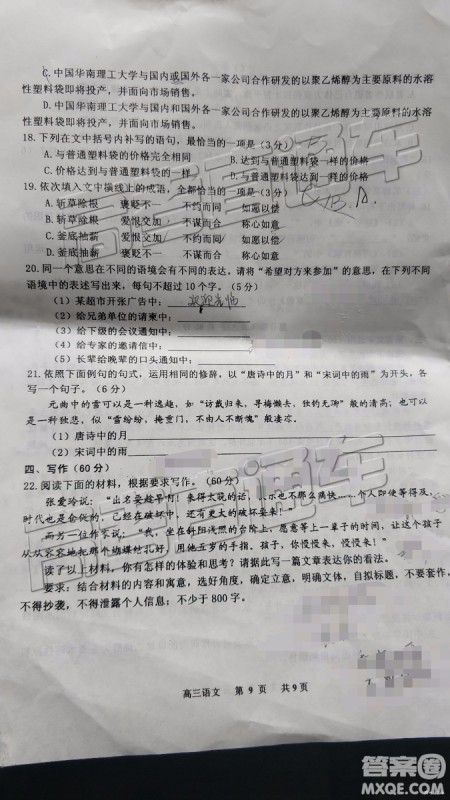 C.中国华南理工大学与国内或国外各一家公司合作研发的以聚乙烯醇为主要原料的水溶
性塑料袋即将投产，并面向市场销售。
D.中国华南理工大学与国内和国外各一家公司合作研发的以聚乙烯醇为主要原料的水溶
性塑料袋即将投产，并面向市场销售。
18.下列在文中括号内补写的语句，最恰当的一项是(3分)
A.与普通塑料袋的价格完全相同 B.达到与普通塑料袋一样的价格
C.与普通塑料袋的价格一样 D.达到与普通塑料袋的价格一样
19.依次填入文中横线上的成语，全都恰当的一项是(3分) B.A.
A.斩草除根 褒贬不一 不约而同 如愿以偿
B.斩草除根 爱恨交加 不谋而合 称心如意
C.釜底抽薪 爱恨交加 不约而同 如愿以偿
D.釜底抽薪 褒贬不一 不谋而合 称心如意
20.同一个意思在不同的语境会有不同的表达，请将“希望对方来参加”的意思，在下列不同
语境中的表述写出来，每句不超过10个字。(5分)
(1) 某超市开张广告中： 欢迎光临
(2) 给兄弟单位的请柬中：
(3) 给下级的会议通知中：
(4) 给专家的邀请信中：
(5) 长辈给晚辈的口头通知中：
21.依照下面例句的句式，运用相同的修辞，以“唐诗中的月”和“宋词中的雨”为开头，各
写一个句子。(6分)
元曲中的雪可以是一种逃趣，如“访戴归来，寻梅懒去，独钓无聊”般的清高；也可以
是一种独愁，似“雪纷纷，掩重门，不由人不断魂”般凄凉。
(1) 唐诗中的月
(2) 宋词中的雨
四、写作(60分)
22.阅读下面的材料，根据要求写作。(60分)
张爱玲说：“出名要趁早啊！来得太晚的话，快乐也不那么痛快……个人即使等得及，
时代也是仓促的，已经在破坏中，还有更大的破坏要来！”
而另一位作家说：“我，坐在斜阳浅照的台阶上，愿意等上一辈子的时间，让这个孩子
从从容容地把那个蝴蝶结扎好，用他五岁的手指。孩子，你慢慢来，慢慢来！”
读了以上材料，你有怎样的体验和思考？请据此写一篇文章表达你的看法。
要求：结合材料的内容和寓意，选好角度，确定立意，明确文体，自拟标题，不要套作，
不得抄袭，不得泄露个人信息；不少于800字。
高三语文 第9页 共9页
高考直通车
高考直通车
答案圈